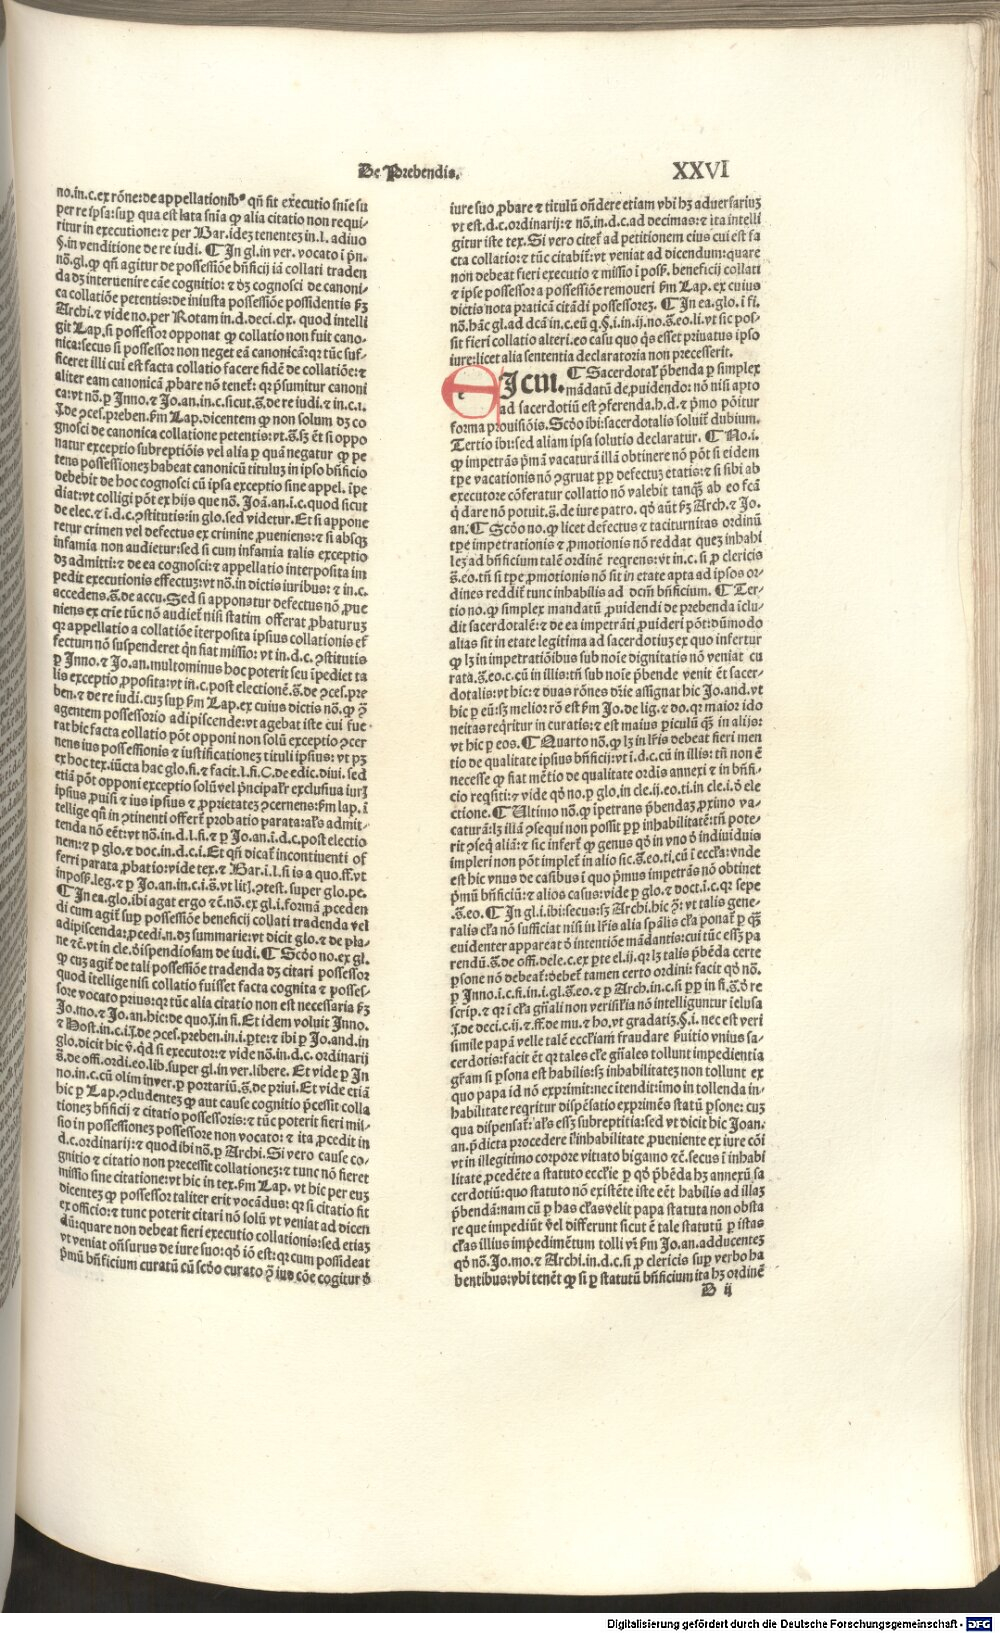 De Prebendis.
XXVI
no.in.c.ex rõne:de appellationibꝰ qñ fit executio snie su
per re ipsa:suꝑ qua est lata snia ꝙ alia citatio non requi-
ritur in executione:⁊ per Bar.idez tenentez in.l. adiuo
§.in venditione de re iudi. ¶ In gl.in ver. vocato i p̃n.
nõ.gl.ꝙ qñ agitur de possessiõe bñficij iã collati traden
da dz interuenire cãe cognitio: ⁊ dz cognosci de canoni-
ca collatiõe petentis:de iniusta possessiõe possidentis ẜz
Archi.⁊ vide no.per Rotam in.d.deci.clx. quod intelli
git Lap.si possessor opponat ꝙ collatio non fuit cano-
nica:secus si possessor non neget eã canonicã:qꝛ tũc suf-
ficeret illi cui est facta collatio facere fidẽ de collatiõe:⁊
aliter eam canonicã ꝓbare nõ tenet̃: qꝛ p̃sumitur canoni
ca:vt nõ.ꝑ Inno.⁊ Jo.an.in.c.sicut.s̃.de re iudi.⁊ in.c.1.
j̃.de ꝯces.preben.ẜm Lap.dicentem ꝙ non solum dz co
gnosci de canonica collatione petentis:vt.s̃.sz ẽt si oppo
natur exceptio subreptiõis vel alia ꝑ quã negatur ꝙ pe
tens possessionez habeat canonicũ titulũ in ipso bñficio
debebit de hoc cognosci cũ ipsa exceptio sine appel. ĩpe
diat:vt colligi põt ex hijs que nõ. Joã.an.i.c.quod sicut
de elec.⁊ i.d.c.ꝯstitutis:in glo.sed videtur. Et si appone
retur crimen vel defectus ex crimine ꝓueniens:⁊ si absqꝫ
infamia non audietur:sed si cum infamia talis exceptio
dz admitti:⁊ de ea cognosci:⁊ appellatio interposita im
pedit executionis effectuz:vt nõ.in dictis iuribus: ⁊ in.c.
accedens.s̃.de accu.Sed si apponatur defectus nõ ꝓue
niens ex crĩe tũc nõ audiet̃ nisi statim offerat ꝓbaturuz
qꝛ appellatio a collatiõe ĩterposita ipsius collationis ef
fectum nõ suspenderet qñ fiat missio: vt in.d.c. ꝯstitutis
ꝑ Inno.⁊ Jo.an.multominus hoc poterit seu ĩpediet ta
lis exceptio ꝓposita:vt iñ.c.post electionẽ.s̃.de ꝯces.pre
ben.⁊ de re iudi.cuz suꝑ ẜm Lap.ex cuius dictis nõ.ꝙ ꝯ̃
agentem possessorio adipiscende:vt agebat iste cui fue-
rat hic facta collatio põt opponi non solũ exceptio ꝯcer
nens ius possessionis ⁊ iustificationez tituli ipsius: vt pꝫ
ex hoc tex.iũcta hac glo.fi.⁊ facit.l.fi.C.de edic.diui. sed
etiã põt opponi exceptio solũ vel p̃ncipalr̃ exclusiua iurĩ
ipsius ꝓuisi ⁊ ius ipsius ⁊ ꝓprietatez ꝯcernens:ẜm lap. ĩ
tellige qñ in ꝯtinenti offert̃ ꝓbatio parata:als̃ admit-
tenda nõ eẽt:vt nõ.in.d.l.fi.⁊ ꝑ Jo.an.i.d.c.post electio
nem:⁊ ꝑ glo.⁊ doc.in.d.c.i.Et qñ dicat̃ incontinenti of
ferri parata ꝓbatio:vide tex.⁊ Bar.i.l.fi is a quo.ff.vt
in poss̃.leg.⁊ ꝑ Jo.an.in.c.i.s̃.vt lit.ꝯtest. super glo.pe.
¶ In ea.glo.ibi agat ergo ⁊ẽ.nõ.ex gl.i.formã ꝓceden
di cum agit̃ suꝑ possessiõe beneficij collati tradenda vel
adipiscenda:ꝓcedi.n.dz summarie:vt dicit glo.⁊ de pla-
ne ⁊ẽ.vt in cle.dispendiosam de iudi.¶ Scd̃o no.ex gl.
ꝙ cuz agit̃ de tali possessiõe tradenda dz citari possessor
quod ĩtellige nisi collatio fuisset facta cognita ⁊ posses-
sore vocato prius:qꝛ tũc alia citatio non est necessaria ẜz
Jo.mo.⁊ Jo.an.hic:de quo.j̃.in fi.Et idem voluit Inno.
⁊ Host.in.c.i.j̃.de ꝯces.preben.in.i.ꝑte:⁊ ibi ꝑ Jo.and.in
glo.dicit hic ṽ.qd̃ si executor:⁊ vide nõ.in.d.c. ordinarij
s̃.de offi.ordi.eo.lib.super gl.in ver.libere. Et vide ꝑ In
no.in.c.cũ olim in ver.ꝑ portariũ.s̃.de priui.Et vide etiã
hic ꝑ Lap.ꝯcludentez ꝙ aut cause cognitio p̃cessit colla
tionez bñficij ⁊ citatio possessoris:⁊ tũc poterit fieri mis-
sio in possessionez possessore non vocato:⁊ ita ꝓcedit in
d.c.ordinarij:⁊ quod ibi nõ.ꝑ Archi.Si vero cause co-
gnitio ⁊ citatio non precessit collationez:⁊ tunc nõ fieret
missio sine citatione:vt hic in tex.ẜm Lap. vt hic per euz
dicentez ꝙ possessor taliter erit vocãdus:qꝛ si citatio fit
ex officio:⁊ tunc poterit citari nõ solũ vt veniat ad dicen
dũ:quare non debeat fieri executio collationis:sed etiaz
vt veniat oñsurus de iure suo:qd̃ iõ est:qꝛ cum possideat
p̃mũ bñficium curatũ cũ scd̃o curato ꝯ̃ ius cõe cogitur d̃
iure suo ꝓbare ⁊ titulũ oñdere etiam vbi hz aduersariuz
vt est.d.c.ordinarij:⁊ nõ.in.d.c.ad decimas:⁊ ita intelli
gitur iste tex.Si vero citet̃ ad petitionem eius cui est fa
cta collatio:⁊ tũc citabit̃:vt veniat ad dicendum:quare
non debeat fieri executio ⁊ missio i poss̃. beneficij collati
⁊ ipse possessor a possessiõe remoueri ẜm Lap. ex cuius
dictis nota praticã citãdi possessorez. ¶ In ea.glo.i fi.
nõ.hãc gl.ad dcã in.c.eũ q.§.i.in ij.no.s̃.eo.li.vt sic pos-
sit fieri collatio alteri.eo casu quo q̃s esset priuatus ipso
iure:licet alia sententia declaratoria non precesserit.
e
Jcm. ¶ Sacerdotal̃ p̃benda ꝑ simplex
mãdatũ de ꝓuidendo: nõ nisi apto
ad sacerdotiũ est ꝯferenda.h.d.⁊ p̃mo põitur
forma prouisiõis.Scd̃o ibi:sacerdotalis soluit̃ dubium.
Tertio ibi:sed aliam ipsa solutio declaratur. ¶ No.i.
ꝙ impetrãs p̃mã vacaturã illã obtinere nõ põt si eidem
tꝑe vacationis nõ ꝯgruat ꝓꝑ defectuz etatis:⁊ si sibi ab
executore cõferatur collatio nõ valebit tanqꝫ ab eo fcã
q̃ dare nõ potuit.s̃.de iure patro. qd̃ aũt ẜz Arch.⁊ Jo.
an. ¶ Scd̃o no.ꝙ licet defectus ⁊ taciturnitas ordinũ
tꝑe impetrationis ⁊ ꝓmotionis nõ reddat quez inhabi
lez ad bñficium talẽ ordinẽ reqrens:vt in.c.si ꝓ clericis
s̃.eo.tñ si tꝑe ꝓmotionis nõ sit in etate apta ad ipsos or-
dines reddit̃ tunc inhabilis ad dcm̃ bñficium. ¶ Ter-
tio no.ꝙ simplex mandatũ ꝓuidendi de prebenda ĩclu-
dit sacerdotalẽ:⁊ de ea impetrãti ꝓuideri põt:dũmodo
alias sit in etate legitima ad sacerdotiuz ex quo infertur
ꝙ lz in impetratiõibus sub noĩe dignitatis nõ veniat cu
rata.s̃.eo.c.cũ in illis:tñ sub noĩe p̃bende venit ẽt sacer-
dotalis:vt hic:⁊ duas rõnes dr̃ie assignat hic Jo.and.vt
hic ꝑ eũ:sz melior rõ est ẜm Jo.de lig.⁊ do.qꝛ maior ido
neitas reqritur in curatis:⁊ est maius ꝑiculũ q̃ꝫ in alijs:
vt hic ꝑ eos. ¶ Quarto nõ.ꝙ lz in lr̃is debeat fieri men
tio de qualitate ipsius bñficij:vt i.d.c.cũ in illis: tñ non ẽ
necesse ꝙ fiat mẽtio de qualitate ordis annexi ⁊ in bñfi-
cio reqsiti:⁊ vide qd̃ no.ꝑ glo.in cle.ij.eo.ti.in cle.i.d̃ ele
ctione. ¶ Ultimo nõ.ꝙ ĩpetrans p̃bendaz ꝓximo va-
caturã:lz illã ꝯsequi non possit ꝓꝑ inhabilitatẽ:tñ pote-
rit ꝯseq̃ aliã:⁊ sic infert̃ ꝙ genus qd̃ in vno d̃ indiuiduis
impleri non põt implet̃ in alio sic.s̃.eo.ti.cũ i ecc̃la:vnde
est hic vnus de casibus i quo p̃mus impetrãs nõ obtinet
p̃mũ bñficiũ:⁊ alios casus:vide ꝑ glo.⁊ doct.i.c.qꝛ sepe
.s̃.eo. ¶ In gl.i.ibi:secus:sz Archi.hic ꝯ̃: vt talis gene-
ralis cl̃a nõ sufficiat nisi in lr̃is alia spãlis cl̃a ponat̃ ꝑ q̃ꝫ
euidenter appareat d̃ intentiõe mãdantis:cui tũc esset pa
rendũ.s̃.de offi.dele.c.ex ꝑte el.ij.qꝛ lz talis p̃bẽda certe
ꝑsone nõ debeat̃:debet̃ tamen certo ordini: facit qd̃ nõ.
ꝑ Inno.i.c.fi.in.i.gl.s̃.eo.⁊ ꝑ Arch.in.c.si ꝓꝑ in fi.s̃.d̃ re
scrip.⁊ qꝛ i cl̃a gñali non verisil̃ia nõ intelliguntur ĩclusa
j̃.de deci.c.ij.⁊ ff.de mu.⁊ ho.vt gradatiz.§.i. nec est veri
simile papã velle talẽ ecclĩam fraudare ẜuitio vnius sa-
cerdotis:facit ẽt qꝛ tales cl̃e gñales tollunt impedientia
gr̃am si ꝑsona est habilis:sz inhabilitatez non tollunt ex
quo papa id nõ exprimit:nec ĩtendit:imo in tollenda in-
habilitate reqritur dispẽsatio exprimẽs statũ ꝑsone: cuz
qua dispensat̃:als̃ essz subreptitia:sed vt dicit hic Joan.
an.p̃dicta procedere i inhabilitate ꝓueniente ex iure cõi
vt in illegitimo corpore vitiato bigamo ⁊ẽ.secus i inhabi
litate ꝓcedẽte a statuto ecclĩe ꝑ qd̃ p̃bẽda hz annexũ sa
cerdotiũ:quo statuto nõ existẽte iste eẽt habilis ad illaz
p̃bendã:nam cũ ꝑ has cl̃as velit papa statuta non obsta
re que impediũt vel differunt sicut ẽ tale statutũ ꝑ istas
cl̃as illius impedimẽtum tolli vr̃ ẜm Jo.an.adducentez
qd̃ nõ.Jo.mo.⁊ Archi.in.d.c.si ꝓ clericis suꝑ verbo ha
bentibus:vbi tenẽt ꝙ si ꝑ statutũ bñficium ita hz ordinẽ
D ij
Digitalisierung gefördert durch die Deutsche Forschungsgemeinschaft - DFG